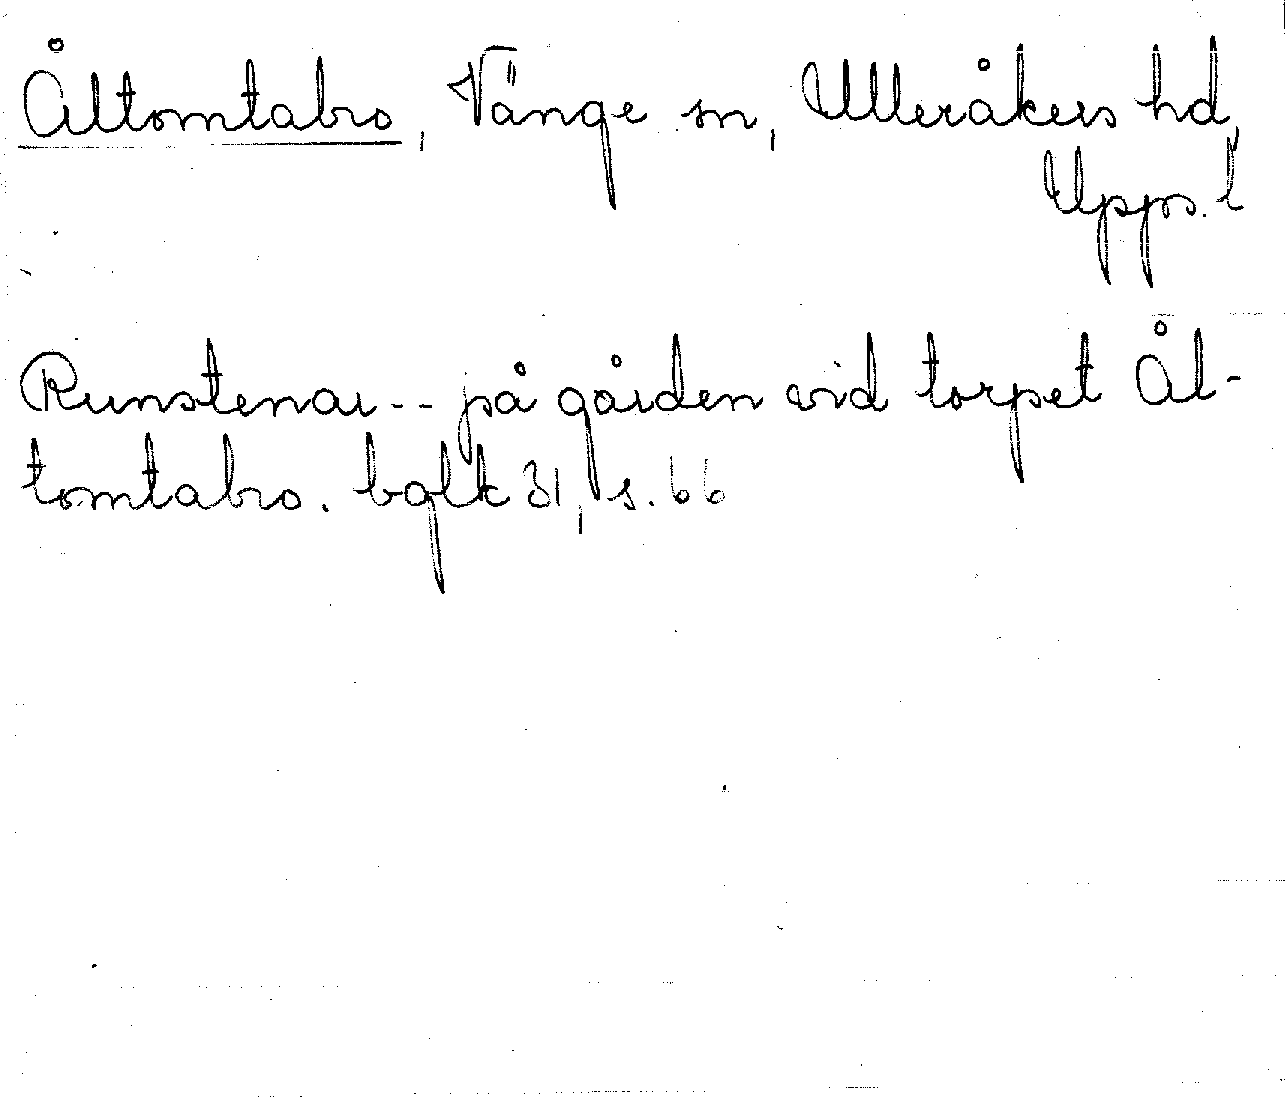 Åltomtabro, Vänge sn, Ulleråkers hd,
Upps. l
Runstenar -- på gården vid torpet Ål-
tomtabro. bqlk 31, s. 66